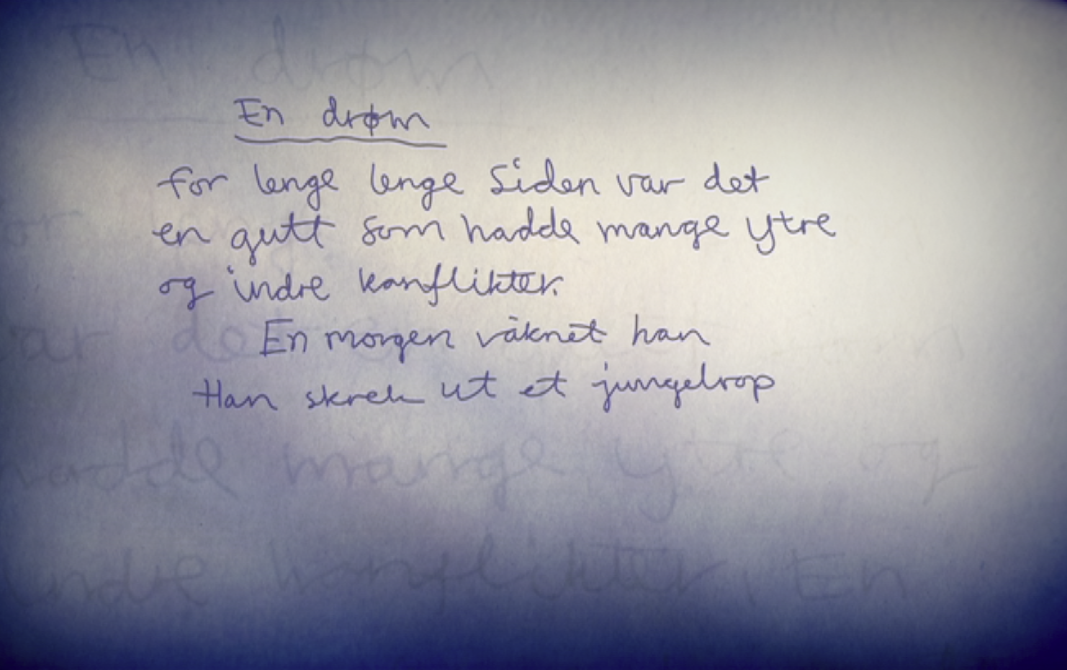 En drøm
for lenge lenge siden var det
en gutt som hadde mange ytre
og indre konflikter.
En morgen våknet han
Han skrek ut et jungelrop